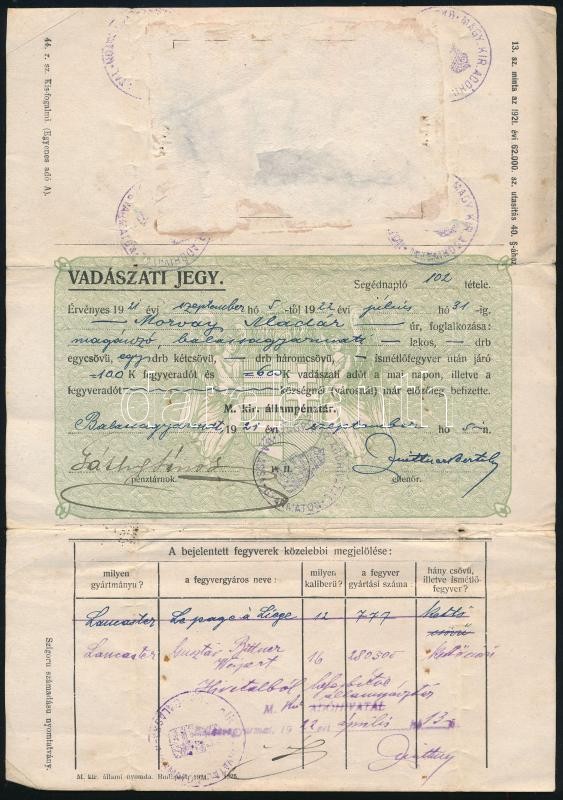 MAGY. KIR. ADÓH
44. r. sz. Kis-fogalmi. (Egyenes adó A).
13. sz. minta az 1921. évi 62.000. sz. utasítás 40. §-ához.
VADÁSZATI JEGY.
Segédnapló 102 tétele.
Érvényes 1921 évi szeptember hó 5-től 1922 évi július hó 31-ig.
Morvay Aladár úr, foglalkozása:
magánzó, balassagyarmati lakos, — drb
egycsövű, egy drb kétcsövű, — drb háromcsövű, — ismétlőfegyver után járó
=100 K fegyveradót és =600 K vadászati adót a mai napon, illetve a
fegyveradót községnél (városnál) már előzőleg befizette.
M. kir. állampénztár.
Balassagyarmat 1921 évi szeptember hó 5-n.
pénztárnok.
ellenőr.
A bejelentett fegyverek közelebbi megjelölése:
milyen gyártmányu? a fegyvergyáros neve: milyen kaliberű? a fegyver gyártási száma: hány csövű, illetve ismétlő-fegyver?
Lancaster Lepage à Liège 12 777 kettő csövű
Lancaster Gusztáv Bittner 16 280500 kettőcsövű
Weipert
Hivatalból
M. kir. ADÓHIVATAL
Balassagyarmat, 1922 évi április hó 13
Szigoru számadásu nyomtatvány.
M. kir. állami nyomda. Budapest, 1921.